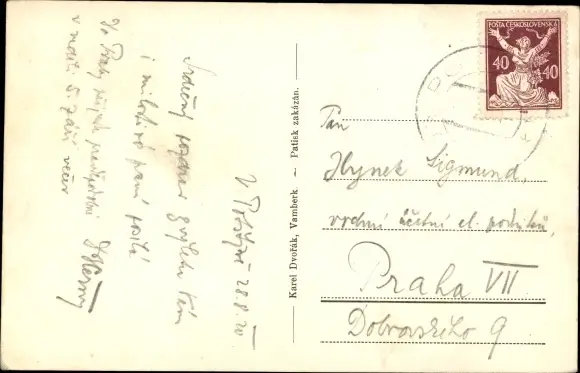 V Potštejně 28.8.20
Srdečný pozdrav z výletu Vám
i milostivé paní posílá
Do Prahy přijedu pravděpodobně
v neděli 5. září večer
Karel Dvořák, Vamberk — Patisk zakázán.
POŠTA ČESKOSLOVENSKÁ
40 40
Pan
Hynek Sigmund,
vrchní účetní el. podniků,
Praha VII
Dobrovského 9